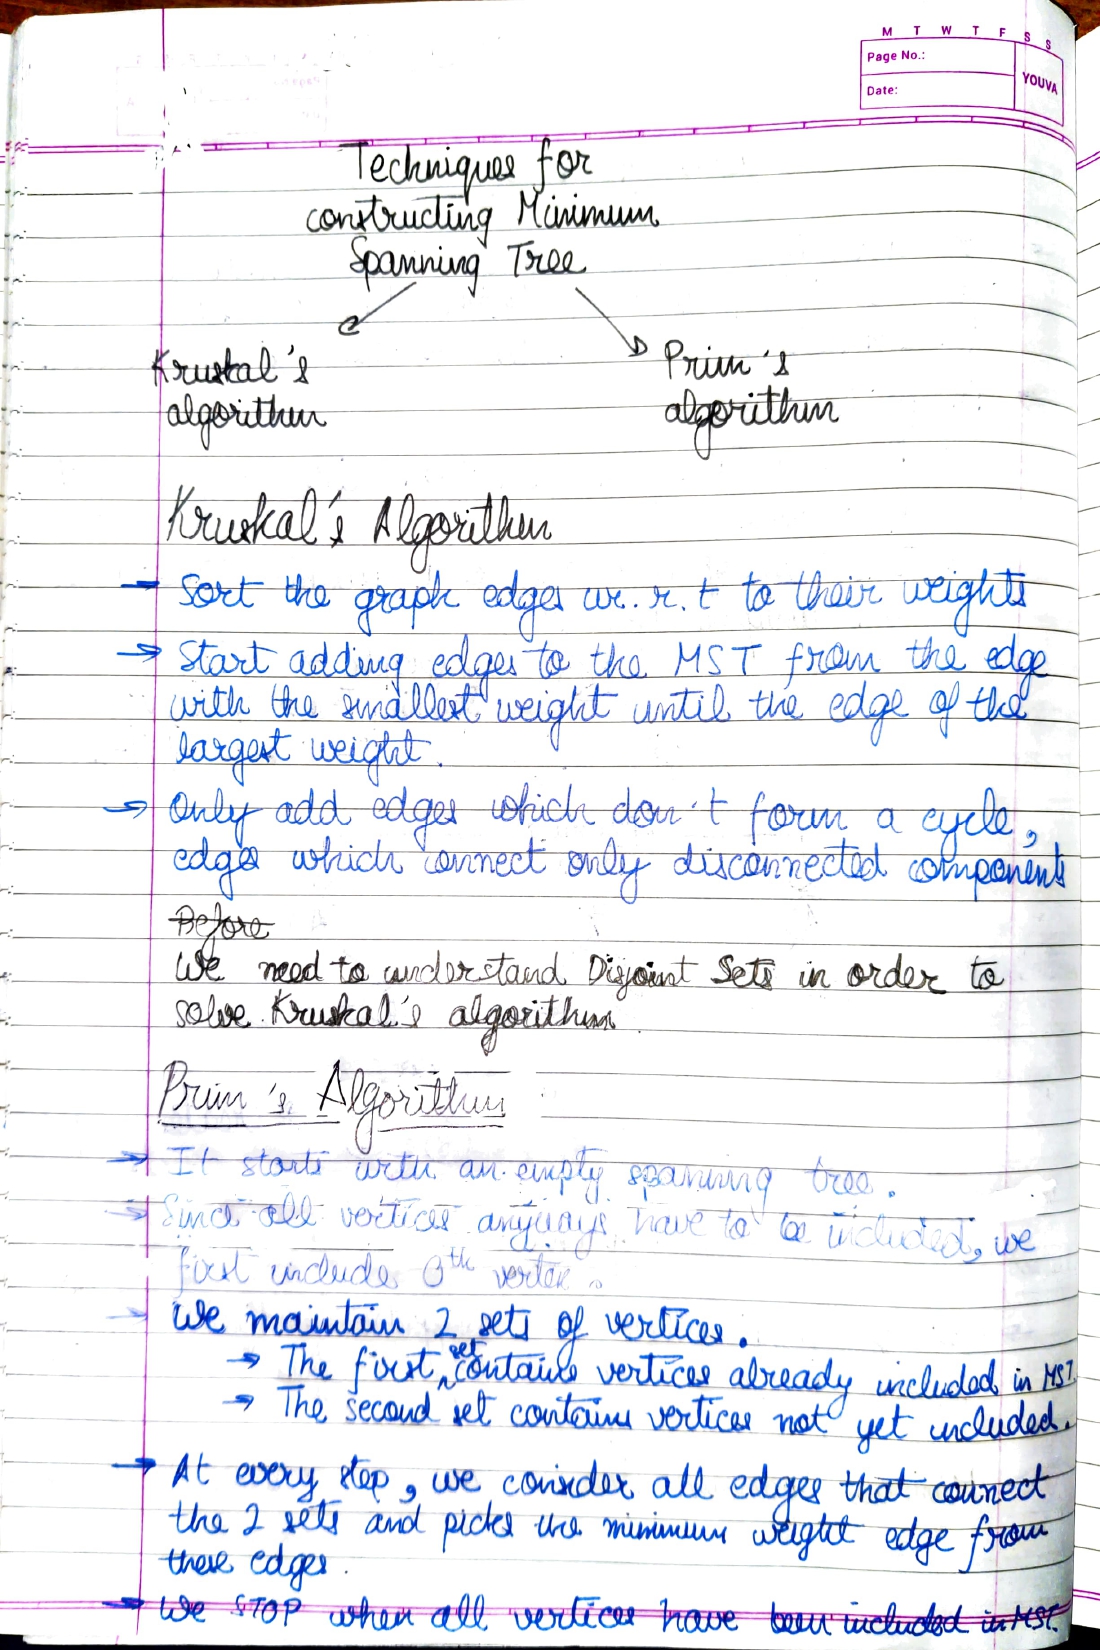 M T W T F S S
Page No.:
YOUVA
Date:
Techniques for
constructing Minimum
Spanning Tree
Kruskal's
algorithm
Prim's
algorithm
Kruskal's Algorithm
→ Sort the graph edges w.r.t to their weights
→ Start adding edges to the MST from the edge
with the smallest weight until the edge of the
largest weight.
→ Only add edges which don't form a cycle,
edges which connect only disconnected components
Before
We need to understand Disjoint Sets in order to
solve Kruskal's algorithm
Prim's Algorithm
→ It starts with an empty spanning tree.
→ Since all vertices anyways have to be included, we
first include 0th vertex.
→ We maintain 2 sets of vertices.
→ The first set contains vertices already included in MST.
→ The second set contains vertices not yet included.
→ At every step, we consider all edges that connect
the 2 sets and picks the minimum weight edge from
these edges.
→ We STOP when all vertices have been included in MST.